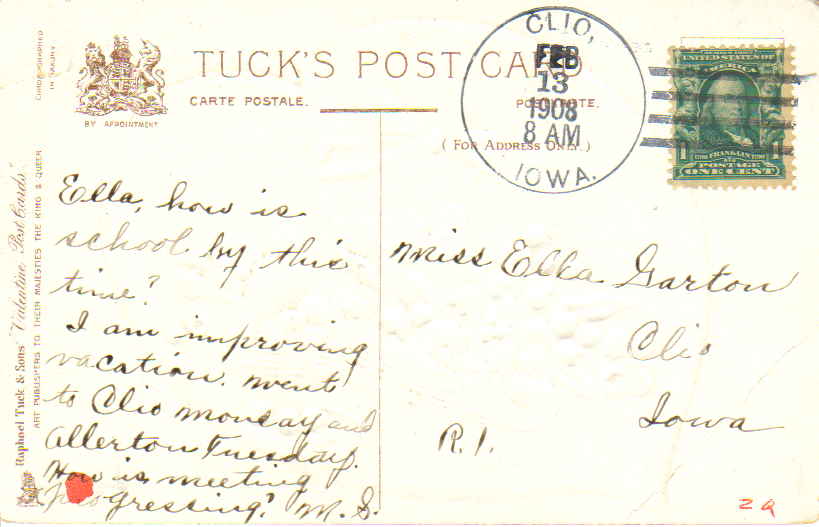 CHROMOGRAPHED
IN SAXONY
BY APPOINTMENT
Raphael Tuck & Sons' "Valentine Post Cards"
ART PUBLISHERS TO THEIR MAJESTIES THE KING & QUEEN
TUCK'S POST CARD
CARTE POSTALE.
POSTKARTE.
(FOR ADDRESS ONLY.)
CLIO,
FEB
13
1908
8 AM
IOWA.
UNITED STATES OF
AMERICA
FRANKLIN
POSTAGE
ONE CENT
Ella, how is
school by this
time?
I am improving
vacation. went
to Clio monday and
Allerton Tuesday.
How is meeting
progressing? M. S.
Miss Ella Garton
Clio
Iowa
R. 1.
2 a